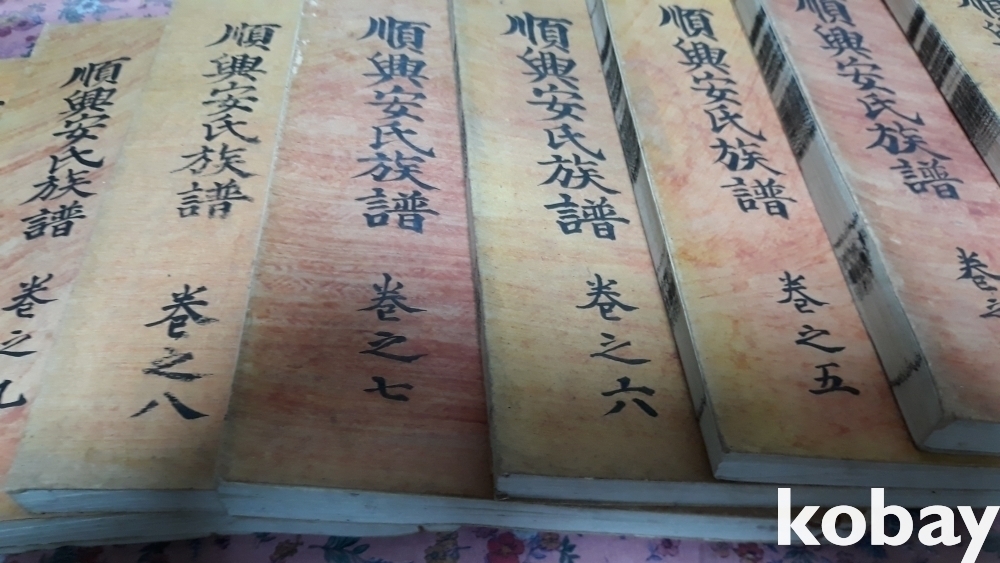 順興
順興安氏族譜
卷之
順興安氏族譜
卷之五
順興安氏族譜
卷之六
順興安氏族譜
卷之七
順興安氏族譜
卷之八
順興安氏族譜
卷之九
kobay